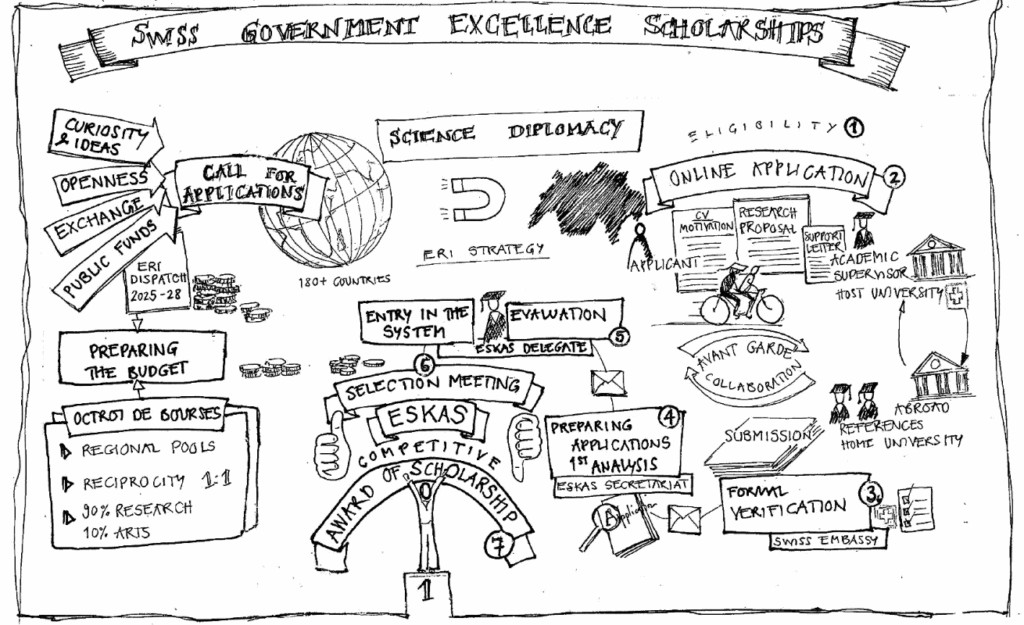 SWISS GOVERNMENT EXCELLENCE SCHOLARSHIPS
CURIOSITY
& IDEAS
OPENNESS
EXCHANGE
PUBLIC FUNDS
CALL FOR
APPLICATIONS
180+ COUNTRIES
SCIENCE DIPLOMACY
ERI STRATEGY
ELIGIBILITY 1
ONLINE APPLICATION 2
CV
MOTIVATION
RESEARCH
PROPOSAL
SUPPORT
LETTER
APPLICANT
ACADEMIC
SUPERVISOR
HOST UNIVERSITY
AVANT GARDE
COLLABORATION
ABROAD
REFERENCES
HOME UNIVERSITY
SUBMISSION
FORMAL
VERIFICATION
3
SWISS EMBASSY
4
PREPARING
APPLICATIONS
1ST ANALYSIS
ESKAS SECRETARIAT
A
Application
ENTRY IN THE
SYSTEM
EVALUATION
5
ESKAS DELEGATE
6
SELECTION MEETING
ESKAS
COMPETITIVE
AWARD OF SCHOLARSHIP
7
1
ERI
DISPATCH
2025-28
PREPARING
THE BUDGET
OCTROI DE BOURSES
REGIONAL POOLS
RECIPROCITY 1:1
90% RESEARCH
10% ARTS